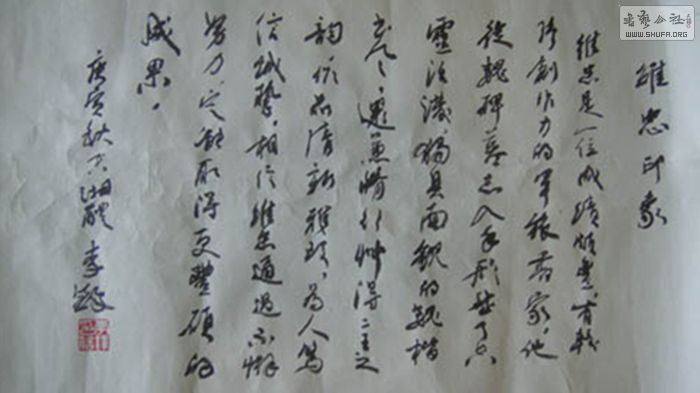 維忠印象
維忠是一位成績頗豐、有較
強創作力的軍旅書家，他
從魏碑墓志入手，形成了空
靈活潑、獨具面貌的魏楷
書風，還兼脩行艸，得二王之
韻，作品清新雅致，為人篤
信誠摯。相信維忠通過不懈
努力，定能取得更豐碩的
成果。
庚寅秋六湖體 李鐸
書藝公社
WWW.SHUFA.ORG